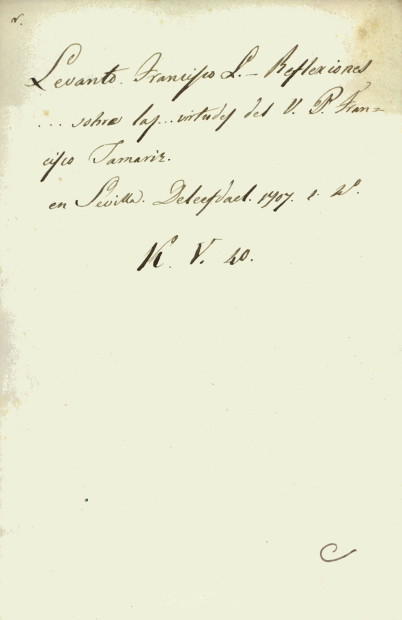 Levanto. Francisco L. – Reflexiones
... sobre las ... virtudes del V. P. Fran=
cisco Tamariz.
en Sevilla. 1707. 1. 4º.
K. V. 40.